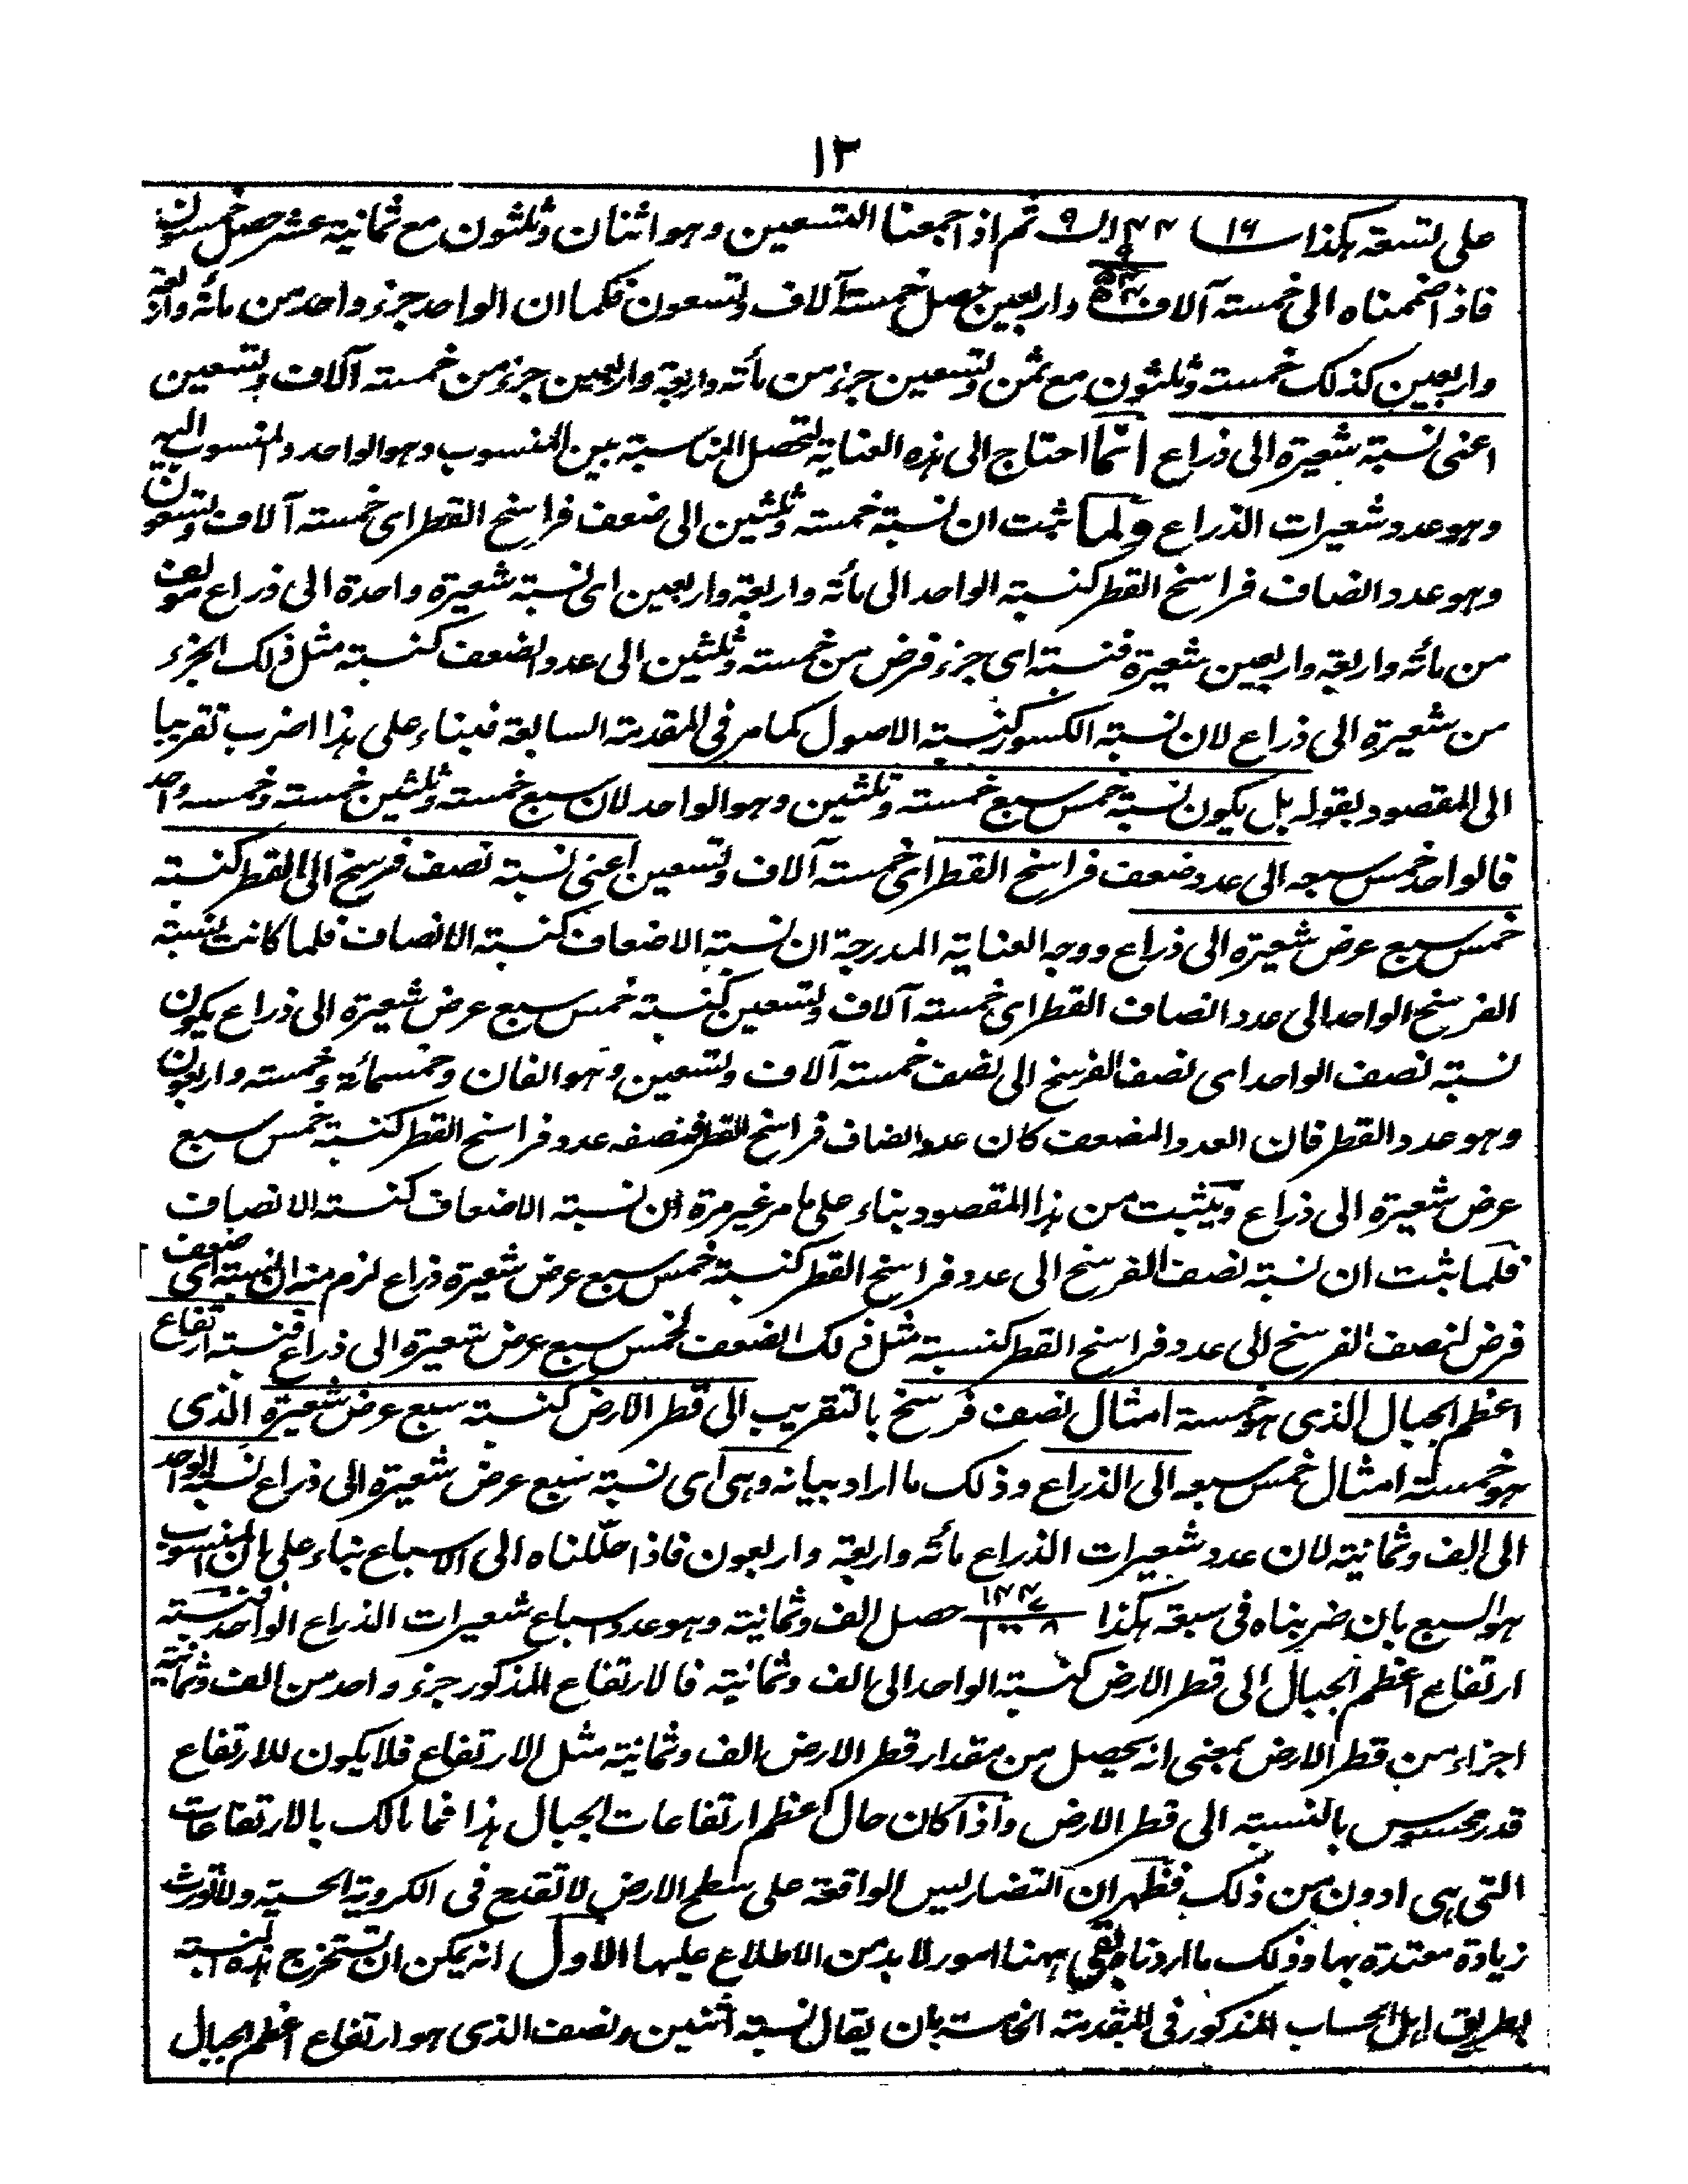 ١٣
على تسعة هكذا ثم اذا جمعنا التسعين وهو اثنان وثلثون مع ثمانية عشر حصل خمسون
فاذا ضممناه الى خمسة آلاف واربعين حصل خمسة آلاف وتسعون فكما ان الواحد جزء واحد من مائة واربعة
واربعين كذلك خمسة وثلثون مع ثمن وتسعين جزء من مائة واربعة واربعين جزء من خمسة آلاف وتسعين
اعنى نسبة شعيرة الى ذراع انما احتاج الى هذه العناية لتحصل المناسبة بين المنسوب وهو الواحد والمنسوب اليه
وهو عدد شعيرات الذراع ولما ثبت ان نسبة خمسة وثلثين الى ضعف فراسخ القطر اى خمسة آلاف وتسعون
وهو عدد انصاف فراسخ القطر كنسبة الواحد الى مائة واربعة واربعين اى نسبة شعيرة واحدة الى ذراع مؤلف
من مائة واربعة واربعين شعيرة فنسبة اى جزء فرض من خمسة وثلثين الى عدد الضعف كنسبة مثل ذلك الجزء
من شعيرة الى ذراع لان نسبة الكسور كنسبة الاصول كما مر فى المقدمة السابعة فبناء على هذا اضرب تقريبا
الى المقصود بقوله بل يكون نسبة خمس سبع خمسة وثلثين وهو الواحد لان سبع خمسة وثلثين خمسة وخمسه واحد
فالواحد خمس سبعه الى عدد ضعف فراسخ القطر اى خمسة آلاف وتسعين اعنى نسبة نصف فرسخ الى القطر كنسبة
خمس سبع عرض شعيرة الى ذراع ووجه العناية المدرجة ان نسبة الاضعاف كنسبة الانصاف فلما كانت نسبة
الفرسخ الواحد الى عدد انصاف القطر اى خمسة آلاف وتسعين كنسبة خمس سبع عرض شعيرة الى ذراع يكون
نسبة نصف الواحد اى نصف الفرسخ الى نصف خمسة آلاف وتسعين وهو الفان وخمسمائة وخمسة واربعون
وهو عدد القطر فان العدد المضعف كان عدد انصاف فراسخ القطر فنصفه عدد فراسخ القطر كنسبة خمس سبع
عرض شعيرة الى ذراع ويثبت من هذا المقصود بناء على ما مر غير مرة ان نسبة الاضعاف كنسبة الانصاف
فلما ثبت ان نسبة نصف الفرسخ الى عدد فراسخ القطر كنسبة خمس سبع عرض شعيرة ذراع لزم منه ان نسبة اى ضعف
فرض لنصف الفرسخ الى عدد فراسخ القطر كنسبة مثل ذلك الضعف لخمس سبع عرض شعيرة الى ذراع فنسبة ارتفاع
اعظم الجبال الذى هو خمسة امثال نصف فرسخ بالتقريب الى قطر الارض كنسبة سبع عرض شعيرة الذى
هو خمسة امثال خمس سبعه الى الذراع وذلك ما اراد بيانه وهى اى نسبة سبع عرض شعيرة الى ذراع نسبة الواحد
الى الف وثمانية لان عدد شعيرات الذراع مائة واربعة واربعون فاذا حللناه الى الاسباع بناء على ان المنسوب
هو السبع بان ضربناه فى سبعة هكذا ١٤٤ ٧ ١٠٠٨ حصل الف وثمانية وهو عدد اسباع شعيرات الذراع الواحد فنسبة
ارتفاع اعظم الجبال الى قطر الارض كنسبة الواحد الى الف وثمانية فالارتفاع المذكور جزء واحد من الف وثمانية
اجزاء من قطر الارض بمعنى انه يحصل من مقدار قطر الارض الف وثمانية مثل الارتفاع فلا يكون للارتفاع
قدر محسوس بالنسبة الى قطر الارض واذا كان حال اعظم ارتفاعات الجبال هذا فما بالك بالارتفاعات
التى هى ادون من ذلك فظهر ان التضاريس الواقعة على سطح الارض لا تقدح فى الكروية الحسية ولا تورث
زيادة معتدة بها وذلك ما اردناه بقى ههنا امور لا بد من الاطلاع عليها الاول انه يمكن ان تستخرج هذه النسبة
بطريق اهل الحساب المذكور فى المقدمة الخامسة بان يقال نسبة اثنين ونصف الذى هو ارتفاع اعظم الجبال